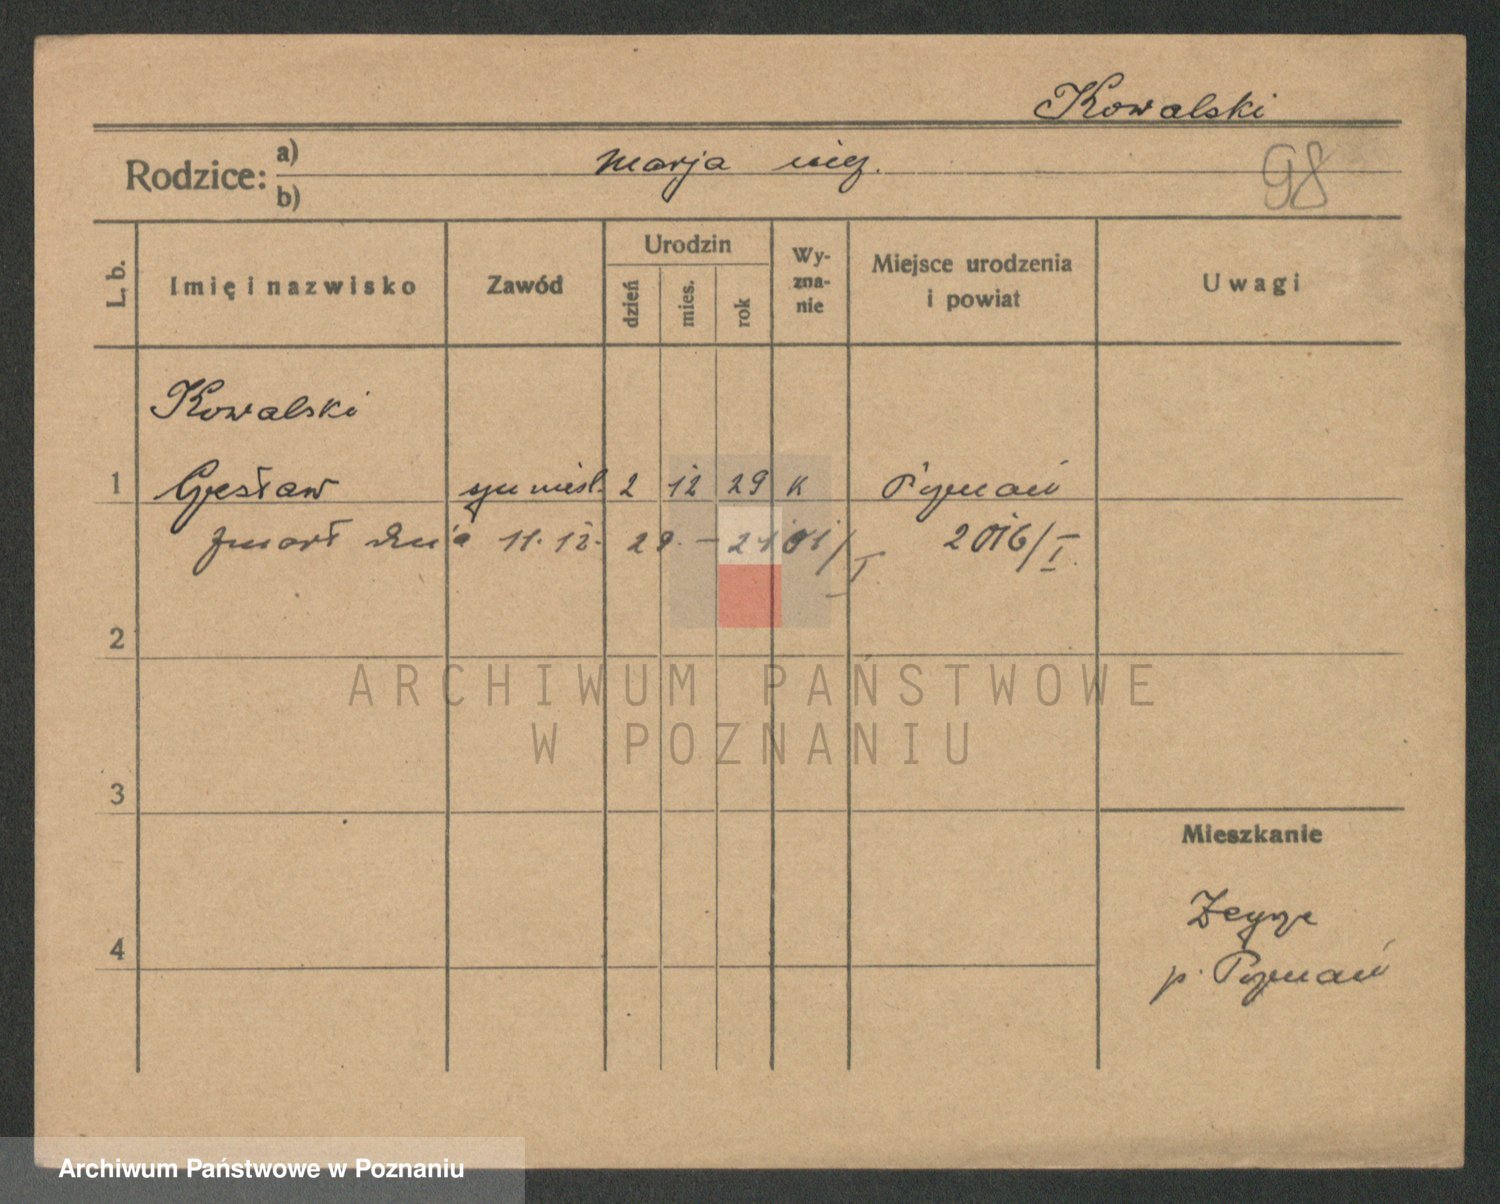 Kowalski
Rodzice: a) Marja niez.
b)
98
L. b. Imię i nazwisko Zawód Urodzin dzień mies. rok Wyznanie Miejsce urodzenia i powiat Uwagi
Kowalski
1 Czesław 2 12 29 K Poznań
zmarł dnia 11.12. 29. – 2016/I.
2
ARCHIWUM PAŃSTWOWE
W POZNANIU
3
Mieszkanie
4
p. Poznań
Archiwum Państwowe w Poznaniu